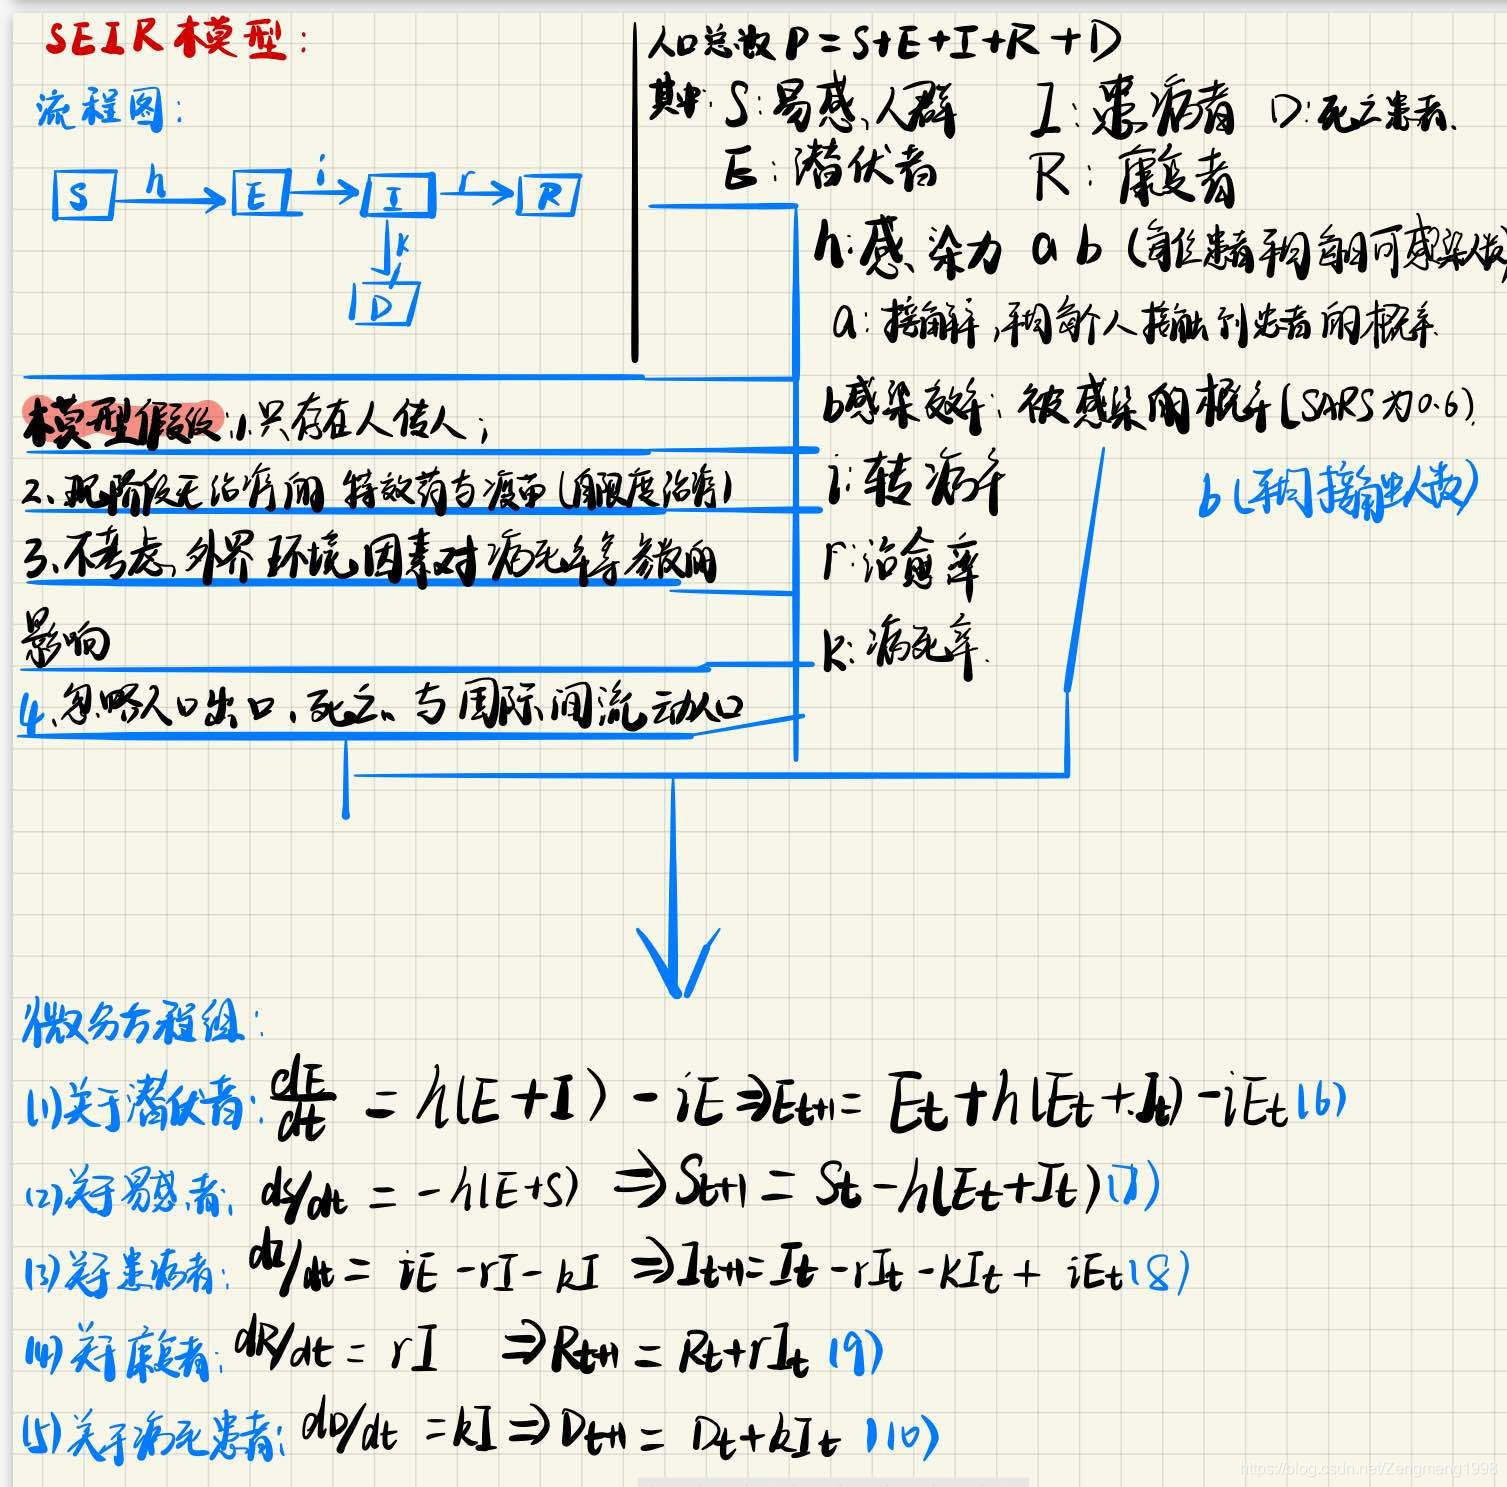 SEIR模型:
流程图:
S h E i I r R
k
D
人口总数 P=S+E+I+R+D
其中: S:易感人群 I:患病者 D:死亡患者.
E:潜伏者 R:康复者
h:感染力 a b (每位患者平均每日可感染人数)
a:接触率,平均每个人接触到患者的概率.
b感染效率:被感染的概率(SARS为0.6).
i:转病率 b(平均接触人数)
r:治愈率
k:病死率.
模型假设:1.只存在人传人;
2、现阶段无治疗的特效药与疫苗(有限度治疗)
3、不考虑外界环境因素对病死率等参数的
影响
4、忽略人口出口、死亡、与国际间流动人口
微分方程组:
(1)关于潜伏者: dE/dt = h(E+I) - iE ⇒ Et+1 = Et + h(Et+It) - iEt (6)
(2)关于易感者: ds/dt = -h(E+S) ⇒ St+1 = St - h(Et+It) (7)
(3)关于患病者: dI/dt = iE - rI - kI ⇒ It+1 = It - rIt - kIt + iEt (8)
(4)关于康复者: dR/dt = rI ⇒ Rt+1 = Rt + rIt (9)
(5)关于病死患者: dD/dt = kI ⇒ Dt+1 = Dt + kIt (10)
https://blog.csdn.net/Zengmeng1998